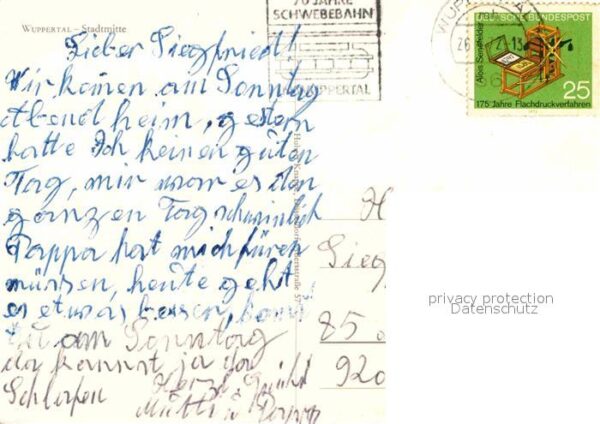 WUPPERTAL – Stadtmitte
70 JAHRE
SCHWEBEBAHN
WUPPERTAL
WUPPERTAL
26. 71-13
DEUTSCHE BUNDESPOST
Alois Senefelder
25
175 Jahre Flachdruckverfahren
Lieber Siegfried!
Wir kamen am Sonntag
Abend heim, gestern
hatte Ich keinen guten
Tag, mir war es den
ganzen Tag schwindlich
Pappa hat mich führen
müssen, heute geht
es etwas besser,
am Sonntag
da kannst ja da
Schlafen
Mutti u Pappa
H
Sieg
85
920
privacy protection
Datenschutz